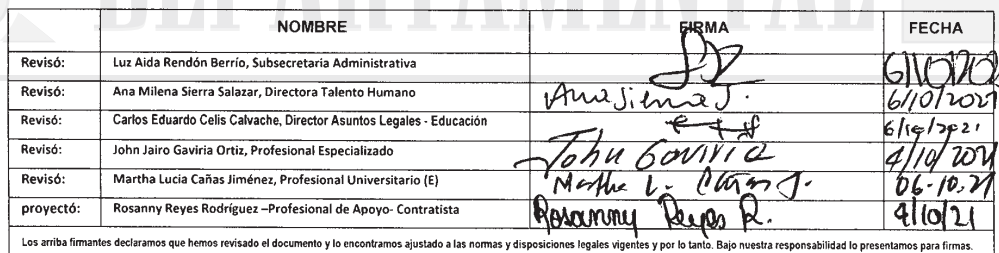 DEPARTAMENTAL
NOMBRE FIRMA FECHA
Revisó: Luz Aida Rendón Berrío, Subsecretaria Administrativa 6/10/202
Revisó: Ana Milena Sierra Salazar, Directora Talento Humano Ana Sierra S. 6/10/2021
Revisó: Carlos Eduardo Celis Calvache, Director Asuntos Legales - Educación 6/10/2021
Revisó: John Jairo Gaviria Ortiz, Profesional Especializado John Gaviria 4/10/2021
Revisó: Martha Lucia Cañas Jiménez, Profesional Universitario (E) Martha L. Cañas J. 06-10-21
proyectó: Rosanny Reyes Rodríguez –Profesional de Apoyo- Contratista Rosanny Reyes R. 4/10/21
Los arriba firmantes declaramos que hemos revisado el documento y lo encontramos ajustado a las normas y disposiciones legales vigentes y por lo tanto. Bajo nuestra responsabilidad lo presentamos para firmas.